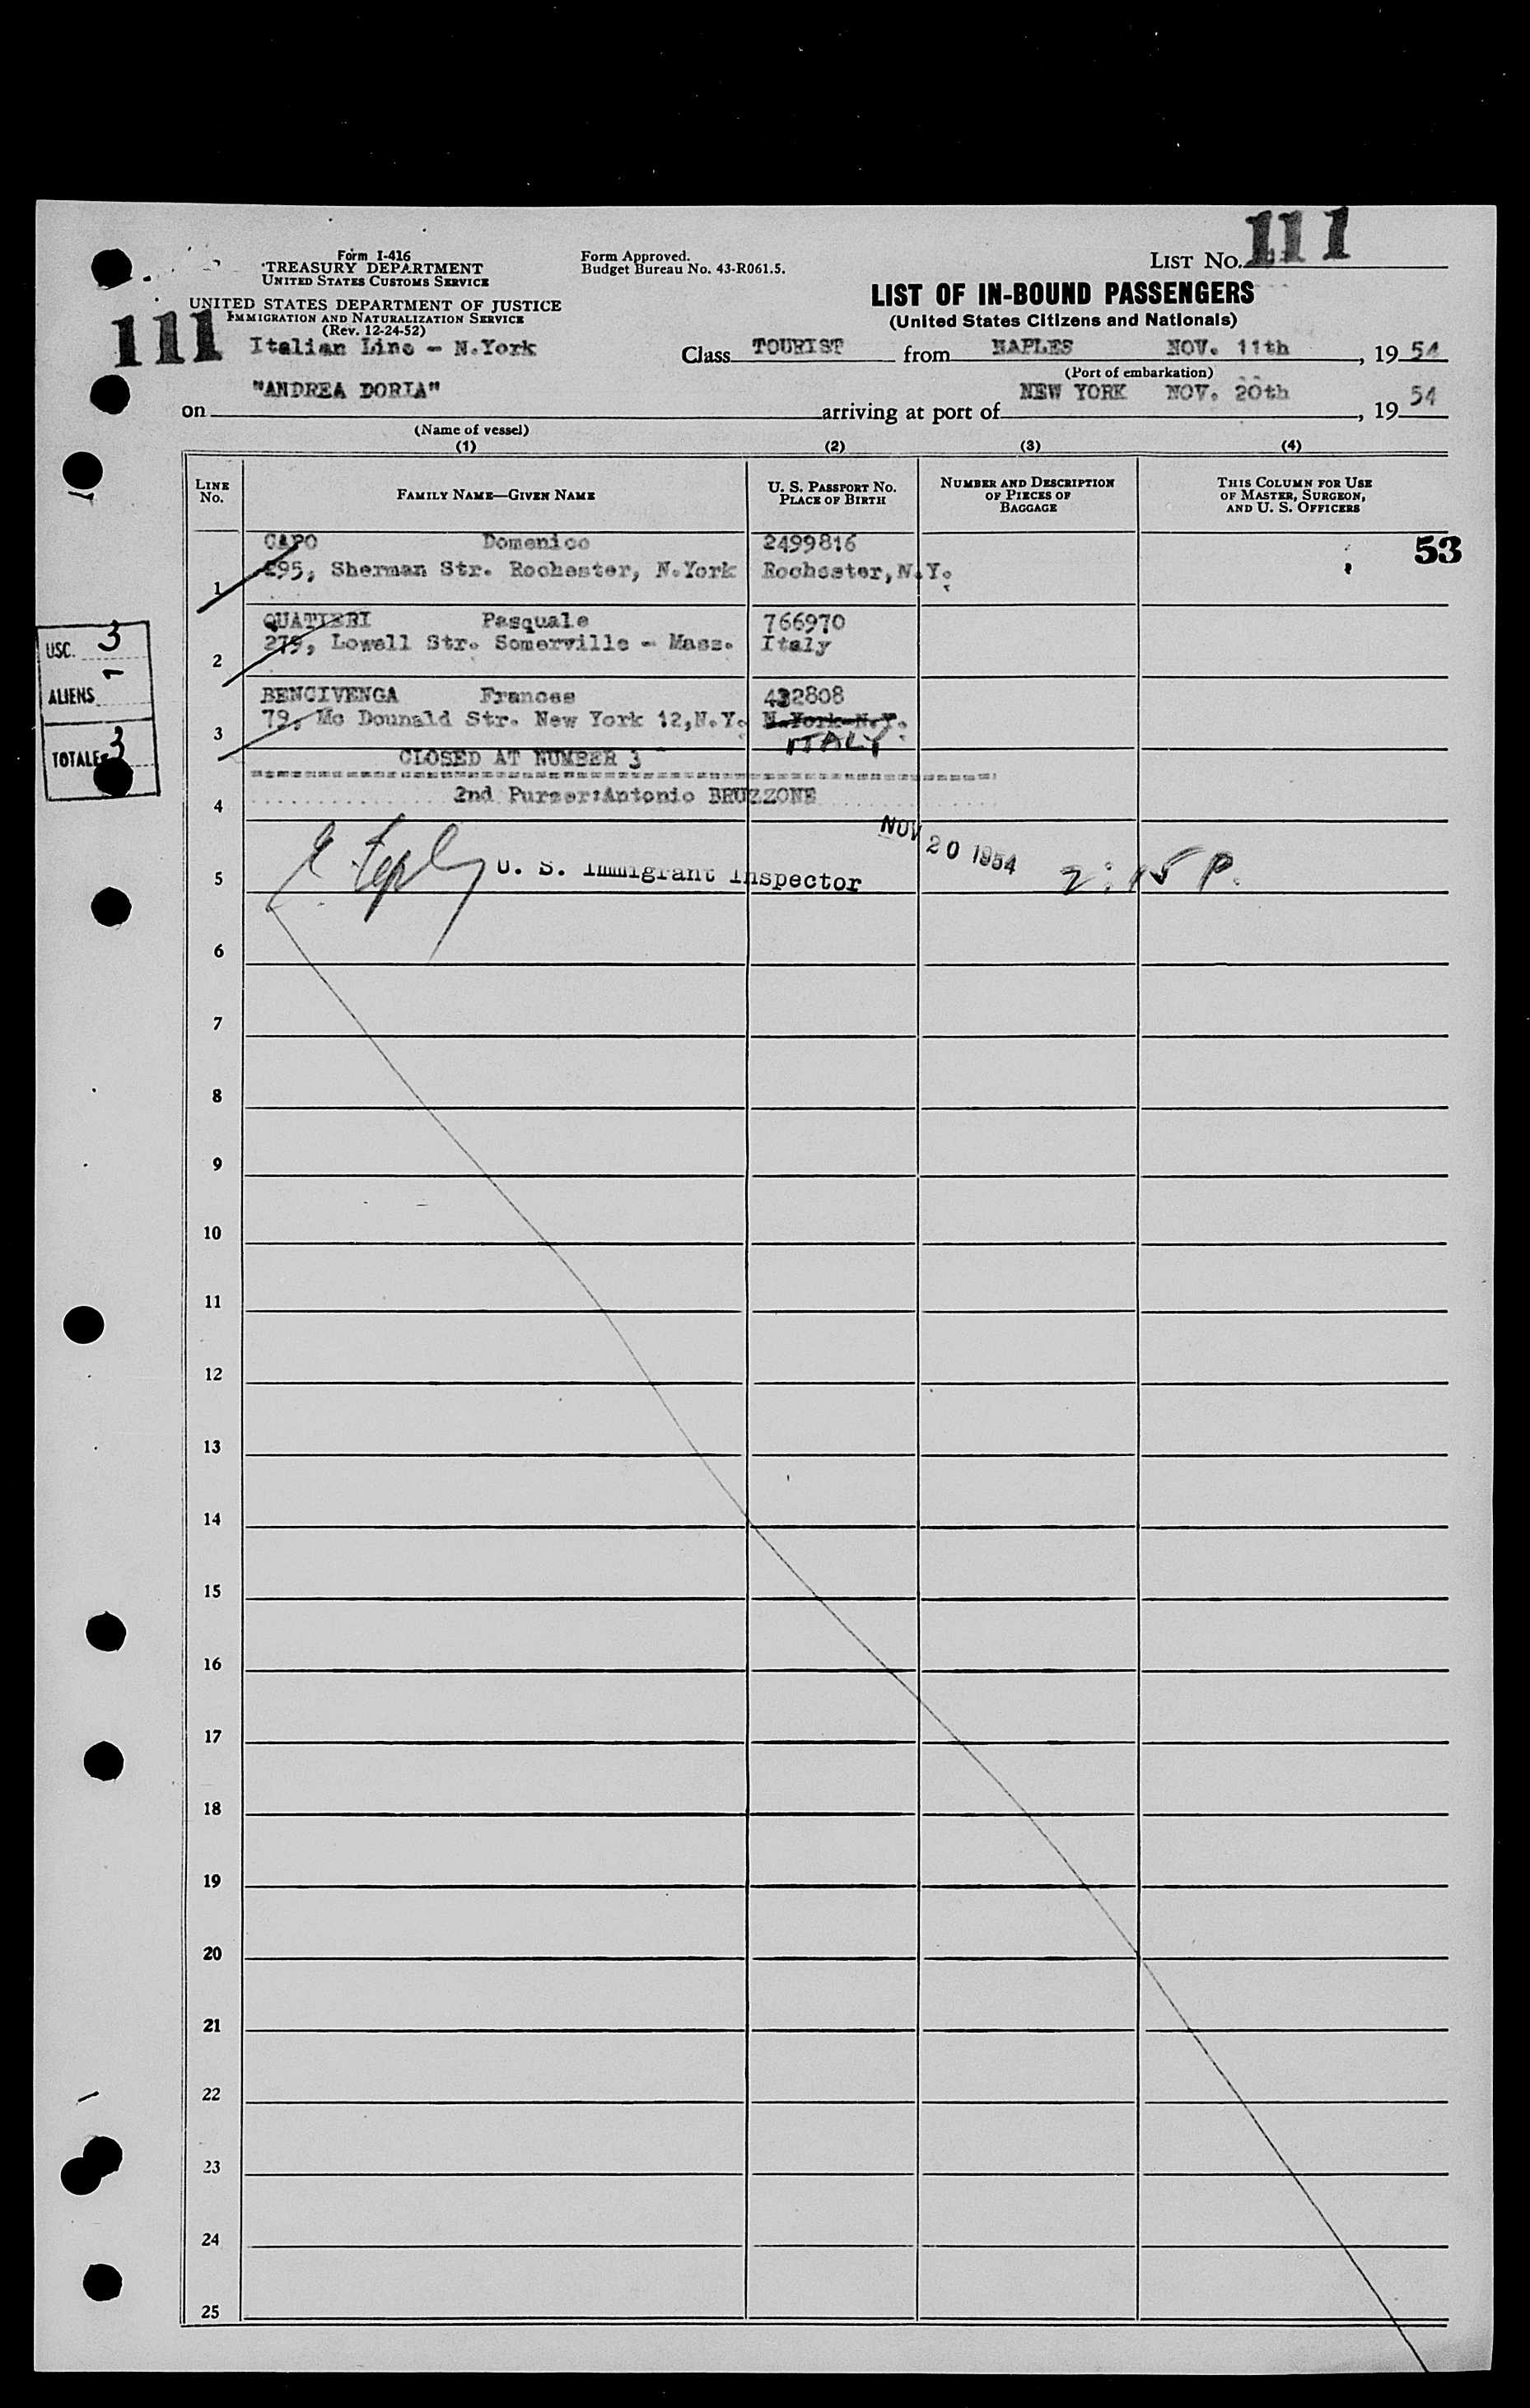 111
Form I-416
TREASURY DEPARTMENT
UNITED STATES CUSTOMS SERVICE
Form Approved.
Budget Bureau No. 43-R061.5.
LIST NO. 111
UNITED STATES DEPARTMENT OF JUSTICE
IMMIGRATION AND NATURALIZATION SERVICE
(Rev. 12-24-52)
LIST OF IN-BOUND PASSENGERS
(United States Citizens and Nationals)
Italian Line - N.York
Class TOURIST from NAPLES NOV. 11th, 19 54
(Port of embarkation)
on "ANDREA DORIA" arriving at port of NEW YORK NOV. 20th, 19 54
(Name of vessel)
(1) (2) (3) (4)
LINE NO.
FAMILY NAME—GIVEN NAME
U. S. PASSPORT NO.
PLACE OF BIRTH
NUMBER AND DESCRIPTION
OF PIECES OF
BAGGAGE
THIS COLUMN FOR USE
OF MASTER, SURGEON,
AND U. S. OFFICERS
53
CAPO Domenico 2499816
1 295, Sherman Str. Rochester, N.York Rochester, N.Y.
QUATIERI Pasquale 766970
2 279, Lowell Str. Somerville - Mass. Italy
BENCIVENGA Frances 432808
3 79, Mc Dounald Str. New York 12, N.Y. N.York N.Y.
ITALY
USC. 3
ALIENS -
TOTALE 3
CLOSED AT NUMBER 3
4 2nd Purser:Antonio BRUZZONE
NOV 20 1954
5 U. S. Immigrant Inspector 2:15 P.
6
7
8
9
10
11
12
13
14
15
16
17
18
19
20
21
22
23
24
25